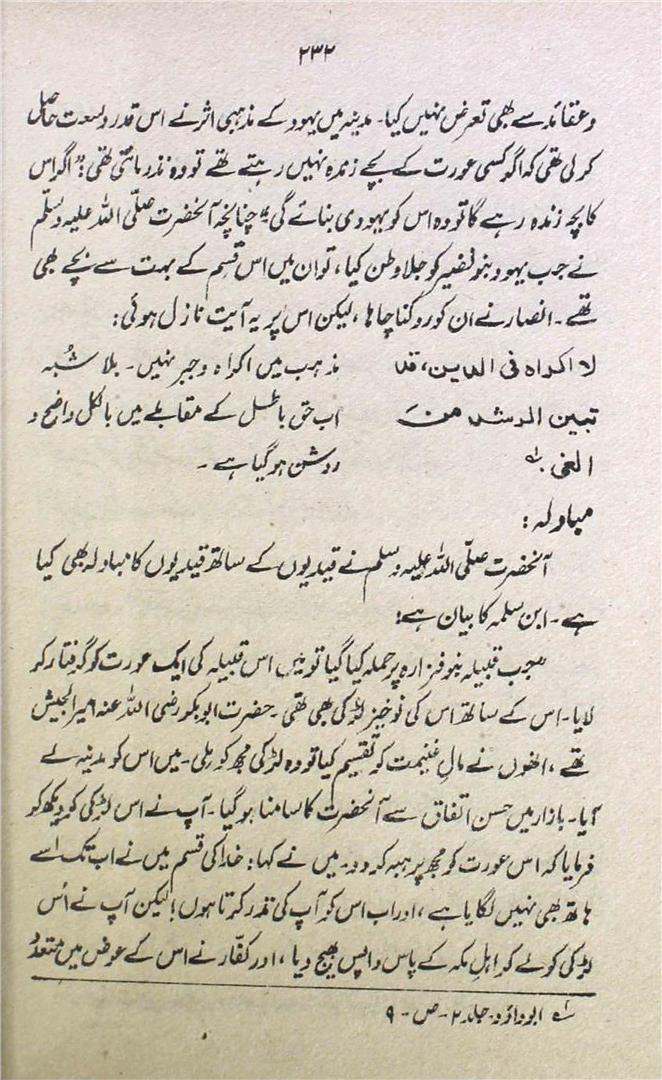 ۲۳۲
و عقائد سے بھی تعرض نہیں کیا۔ مدینہ میں یہود کے مذہبی اثر نے اس قدر وسعت حاصل
کر لی تھی کہ اگر کسی عورت کے بچے زندہ نہیں رہتے تھے تو وہ نذر مانتی تھی: "اگر اس
کا بچہ زندہ رہے گا تو وہ اس کو یہودی بنائے گی" چنانچہ آنحضرت صلّی اللہ علیہ وسلّم
نے جب یہود بنو نضیر کو جلا وطن کیا، تو ان میں اس قسم کے بہت سے بچے بھی
تھے۔ انصار نے ان کو روکنا چاہا، لیکن اس پر یہ آیت نازل ہوئی:
لا اکراہ فی الدین، قد مذہب میں اکراہ و جبر نہیں۔ بلا شُبہ
تبین الرشد من اب حق باطل کے مقابلے میں بالکل واضح و
الغی ۔؂۱ روشن ہو گیا ہے۔
مبادلہ:
آنحضرت صلّی اللہ علیہ وسلم نے قیدیوں کے ساتھ قیدیوں کا مبادلہ بھی کیا
ہے۔ ابن سلمہ کا بیان ہے:
"جب قبیلہ بنو فزارہ پر حملہ کیا گیا تو میں اس قبیلہ کی ایک عورت کو گرفتار کر
لایا۔ اس کے ساتھ اس کی نوخیز لڑکی بھی تھی۔ حضرت ابوبکر رضی اللہ عنہ امیر الجیش
تھے، انھوں نے مالِ غنیمت کو تقسیم کیا تو وہ لڑکی مجھ کو ملی۔ میں اس کو مدینہ لے
آیا۔ بازار میں حسن اتفاق سے آنحضرت کا سامنا ہو گیا۔ آپ نے اس لڑکی کو دیکھ کر
فرمایا کہ اس عورت کو مجھ پر ہبہ کر دو۔ میں نے کہا: خدا کی قسم میں نے اب تک اسے
ہاتھ بھی نہیں لگایا ہے، اور اب اس کو آپ کی نذر کرتا ہوں! لیکن آپ نے اُس
لڑکی کو لے کر اہلِ مکہ کے پاس واپس بھیج دیا، اور کفّار نے اس کے عوض میں متعدّد
؂۱ ابوداؤد۔ جلد ۲۔ ص۔ ۹